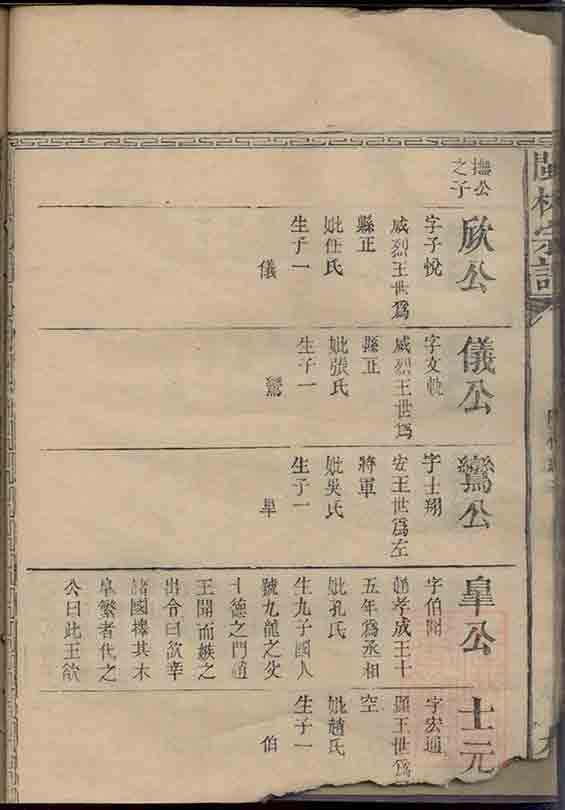 閩林宗譜
撫公
之子
欣公
字子悅
威烈王世爲
縣正
妣任氏
生子一
儀
儀公
字文軌
威烈王世爲
縣正
妣張氏
生子一
鸞
鸞公
字士翔
安王世爲左
將軍
妣吳氏
生子一
皐
皐公
字伯
趙孝成王十
五年爲丞相
妣孔氏
生九子國人
號九龍之父
十德之門
王聞而嫉之
出令曰欲幸
諸國棒其木
繁者代之
公曰此王欲
士元
字宏通
顯王世爲
空
妣趙氏
生子一
伯